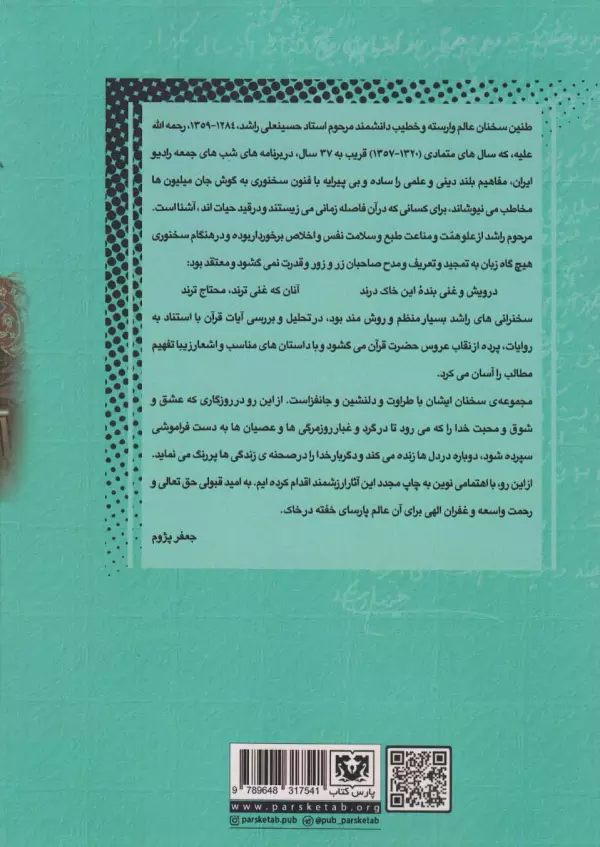 طنین سخنان عالم وارسته و خطیب دانشمند مرحوم استاد حسینعلی راشد، ۱۲۸۴-۱۳۵۹، رحمه الله
علیه، که سال های متمادی (۱۳۲۰-۱۳۵۷) قریب به ۳۷ سال، در برنامه های شب های جمعه رادیو
ایران، مفاهیم بلند دینی و علمی را ساده و بی پیرایه با فنون سخنوری به گوش جان میلیون ها
مخاطب می نیوشاند، برای کسانی که در آن فاصله زمانی می زیستند و در قید حیات اند، آشنا است.
مرحوم راشد از علو همّت و مناعت طبع و سلامت نفس و اخلاص برخوردار بوده و در هنگام سخنوری
هیچ گاه زبان به تمجید و تعریف و مدح صاحبان زر و زور و قدرت نمی گشود و معتقد بود:
درویش و غنی بندهٔ این خاک درند آنان که غنی ترند، محتاج ترند
سخنرانی های راشد بسیار منظم و روش مند بود، در تحلیل و بررسی آیات قرآن با استناد به
روایات، پرده از نقاب عروس حضرت قرآن می گشود و با داستان های مناسب و اشعار زیبا تفهیم
مطالب را آسان می کرد.
مجموعه ی سخنان ایشان با طراوت و دلنشین و جانفزاست. از این رو در روزگاری که عشق و
شوق و محبت خدا را که می رود تا در گرد و غبار روزمرگی ها و عصیان ها به دست فراموشی
سپرده شود، دوباره در دل ها زنده می کند و دگربار خدا را در صحنه ی زندگی ها پررنگ می نماید.
از این رو، با اهتمامی نوین به چاپ مجدد این آثار ارزشمند اقدام کرده ایم. به امید قبولی حق تعالی و
رحمت واسعه و غفران الهی برای آن عالم پارسای خفته در خاک.
جعفر پژوم
پارس کتاب
9 789648 317541
www.parsketab.org
parsketab.pub @pub_parsketab